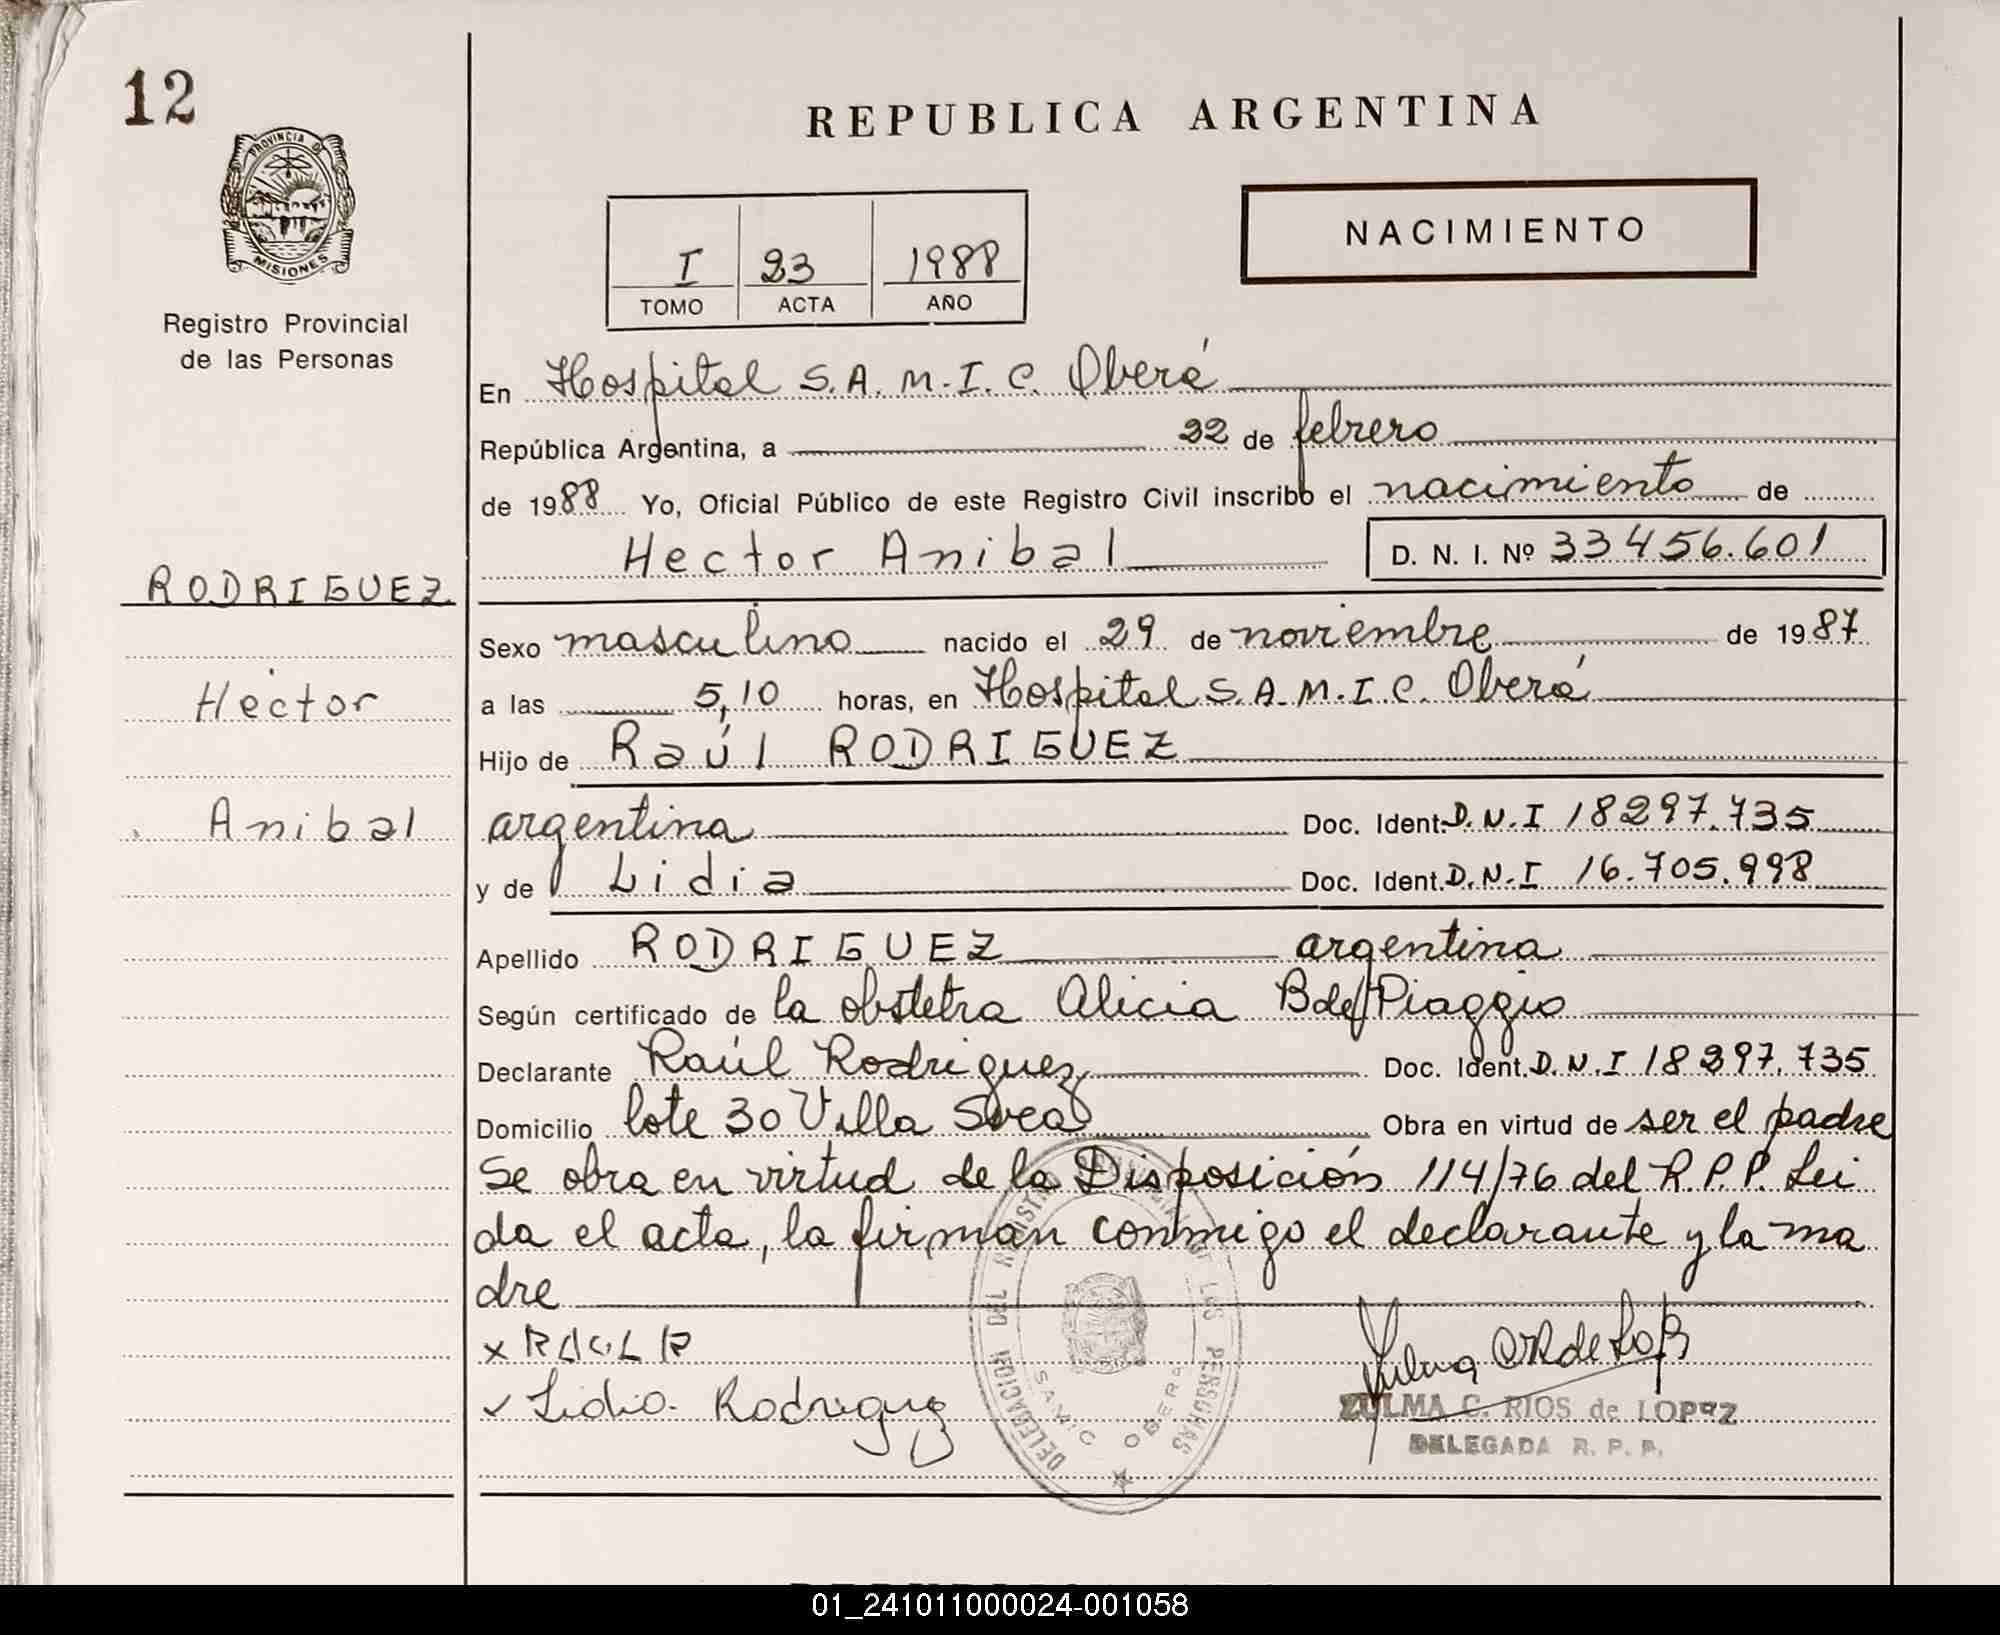 12
REPUBLICA ARGENTINA
PROVINCIA DE
MISIONES
Registro Provincial
de las Personas
NACIMIENTO
I 23 1988
TOMO ACTA AÑO
En Hospital S.A.M.I.C. Oberá
República Argentina, a 22 de febrero
de 1988 Yo, Oficial Público de este Registro Civil inscribo el nacimiento de
Hector Anibal D. N. I. Nº 33456.601
RODRIGUEZ
Hector
Anibal
Sexo masculino nacido el 29 de noviembre de 1987
a las 5,10 horas, en Hospital S.A.M.I.C. Oberá
Hijo de Raúl RODRIGUEZ
argentina Doc. Ident. D.N.I 18297.735
y de Lidia Doc. Ident. D.N.I 16.705.998
Apellido RODRIGUEZ argentina
Según certificado de la obstetra Alicia B de Piaggio
Declarante Raúl Rodriguez Doc. Ident. D.N.I 18297.735
Domicilio lote 30 Villa Svea Obra en virtud de ser el padre
Se obra en virtud de la Disposición 114/76 del R.P.P. Lei
da el acta, la firman conmigo el declarante y la ma
dre
x RAUL R
Lidia Rodriguez
DELEGACION DEL REGISTRO PROVINCIAL DE LAS PERSONAS
SAMIC OBERA
ZULMA C. RIOS de LOPEZ
DELEGADA R. P. P.
01_241011000024-001058